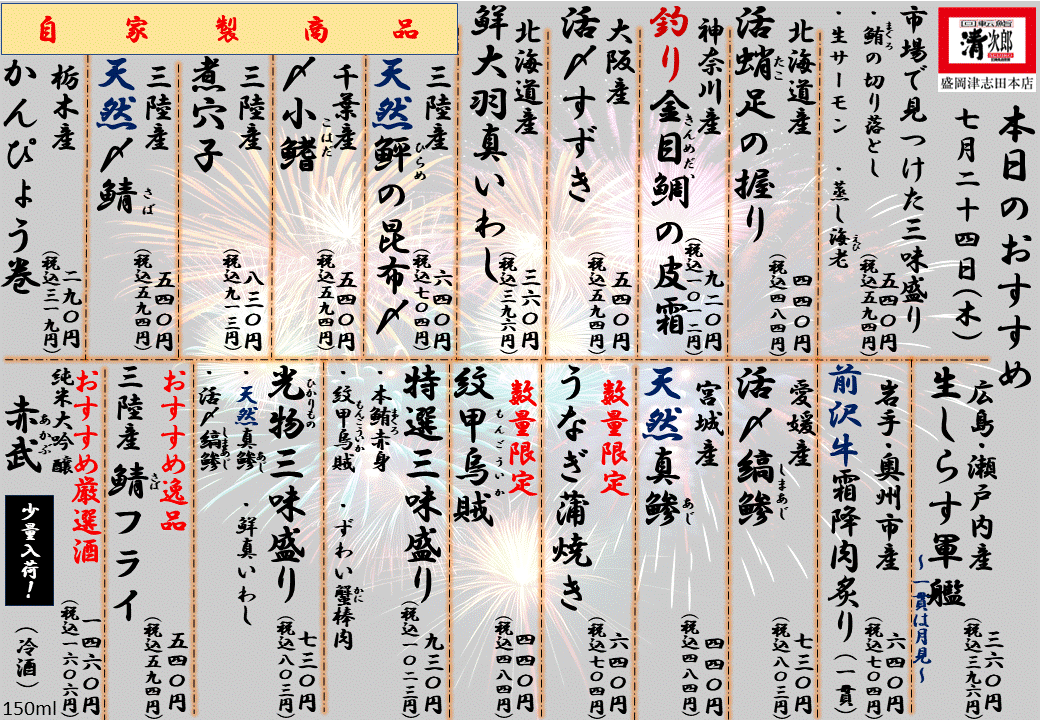 回転鮨
清次郎
盛岡津志田本店
本日のおすすめ
七月二十四日(木)
市場で見つけた三味盛り
・鮪の切り落とし
まぐろ
・生サーモン ・蒸し海老
えび
五四〇円
(税込五九四円)
北海道産
活蛸足の握り
たこ
四四〇円
(税込四八四円)
神奈川産
釣り金目鯛の皮霜
きんめだい
九二〇円
(税込一〇一二円)
大阪産
活〆すずき
五四〇円
(税込五九四円)
北海道産
鮮大羽真いわし
三六〇円
(税込三九六円)
自家製商品
三陸産
天然鮃の昆布〆
ひらめ
六四〇円
(税込七〇四円)
千葉産
〆小鰭
こはだ
五四〇円
(税込五九四円)
三陸産
煮穴子
八三〇円
(税込九一三円)
三陸産
天然〆鯖
さば
五四〇円
(税込五九四円)
栃木産
かんぴょう巻
二九〇円
(税込三一九円)
広島・瀬戸内産
生しらす軍艦
~一貫は月見~
三六〇円
(税込三九六円)
岩手・奥州市産
前沢牛霜降肉炙り(一貫)
六四〇円
(税込七〇四円)
愛媛産
活〆縞鯵
しまあじ
七三〇円
(税込八〇三円)
宮城産
天然真鯵
あじ
四四〇円
(税込四八四円)
数量限定
うなぎ蒲焼き
六四〇円
(税込七〇四円)
数量限定
紋甲烏賊
もんごういか
四四〇円
(税込四八四円)
特選三味盛り
・本鮪赤身
まぐろ
・紋甲烏賊 ・ずわい蟹棒肉
もんごういか
かに
九三〇円
(税込一〇二三円)
光物三味盛り
ひかりもの
・天然真鯵 ・鮮真いわし
あじ
・活〆縞鯵
しまあじ
七三〇円
(税込八〇三円)
おすすめ逸品
三陸産 鯖フライ
さば
五四〇円
(税込五九四円)
おすすめ厳選酒
純米大吟醸
赤武
あかぶ
少量入荷!
(冷酒)
一四六〇円
(税込一六〇六円)
150ml